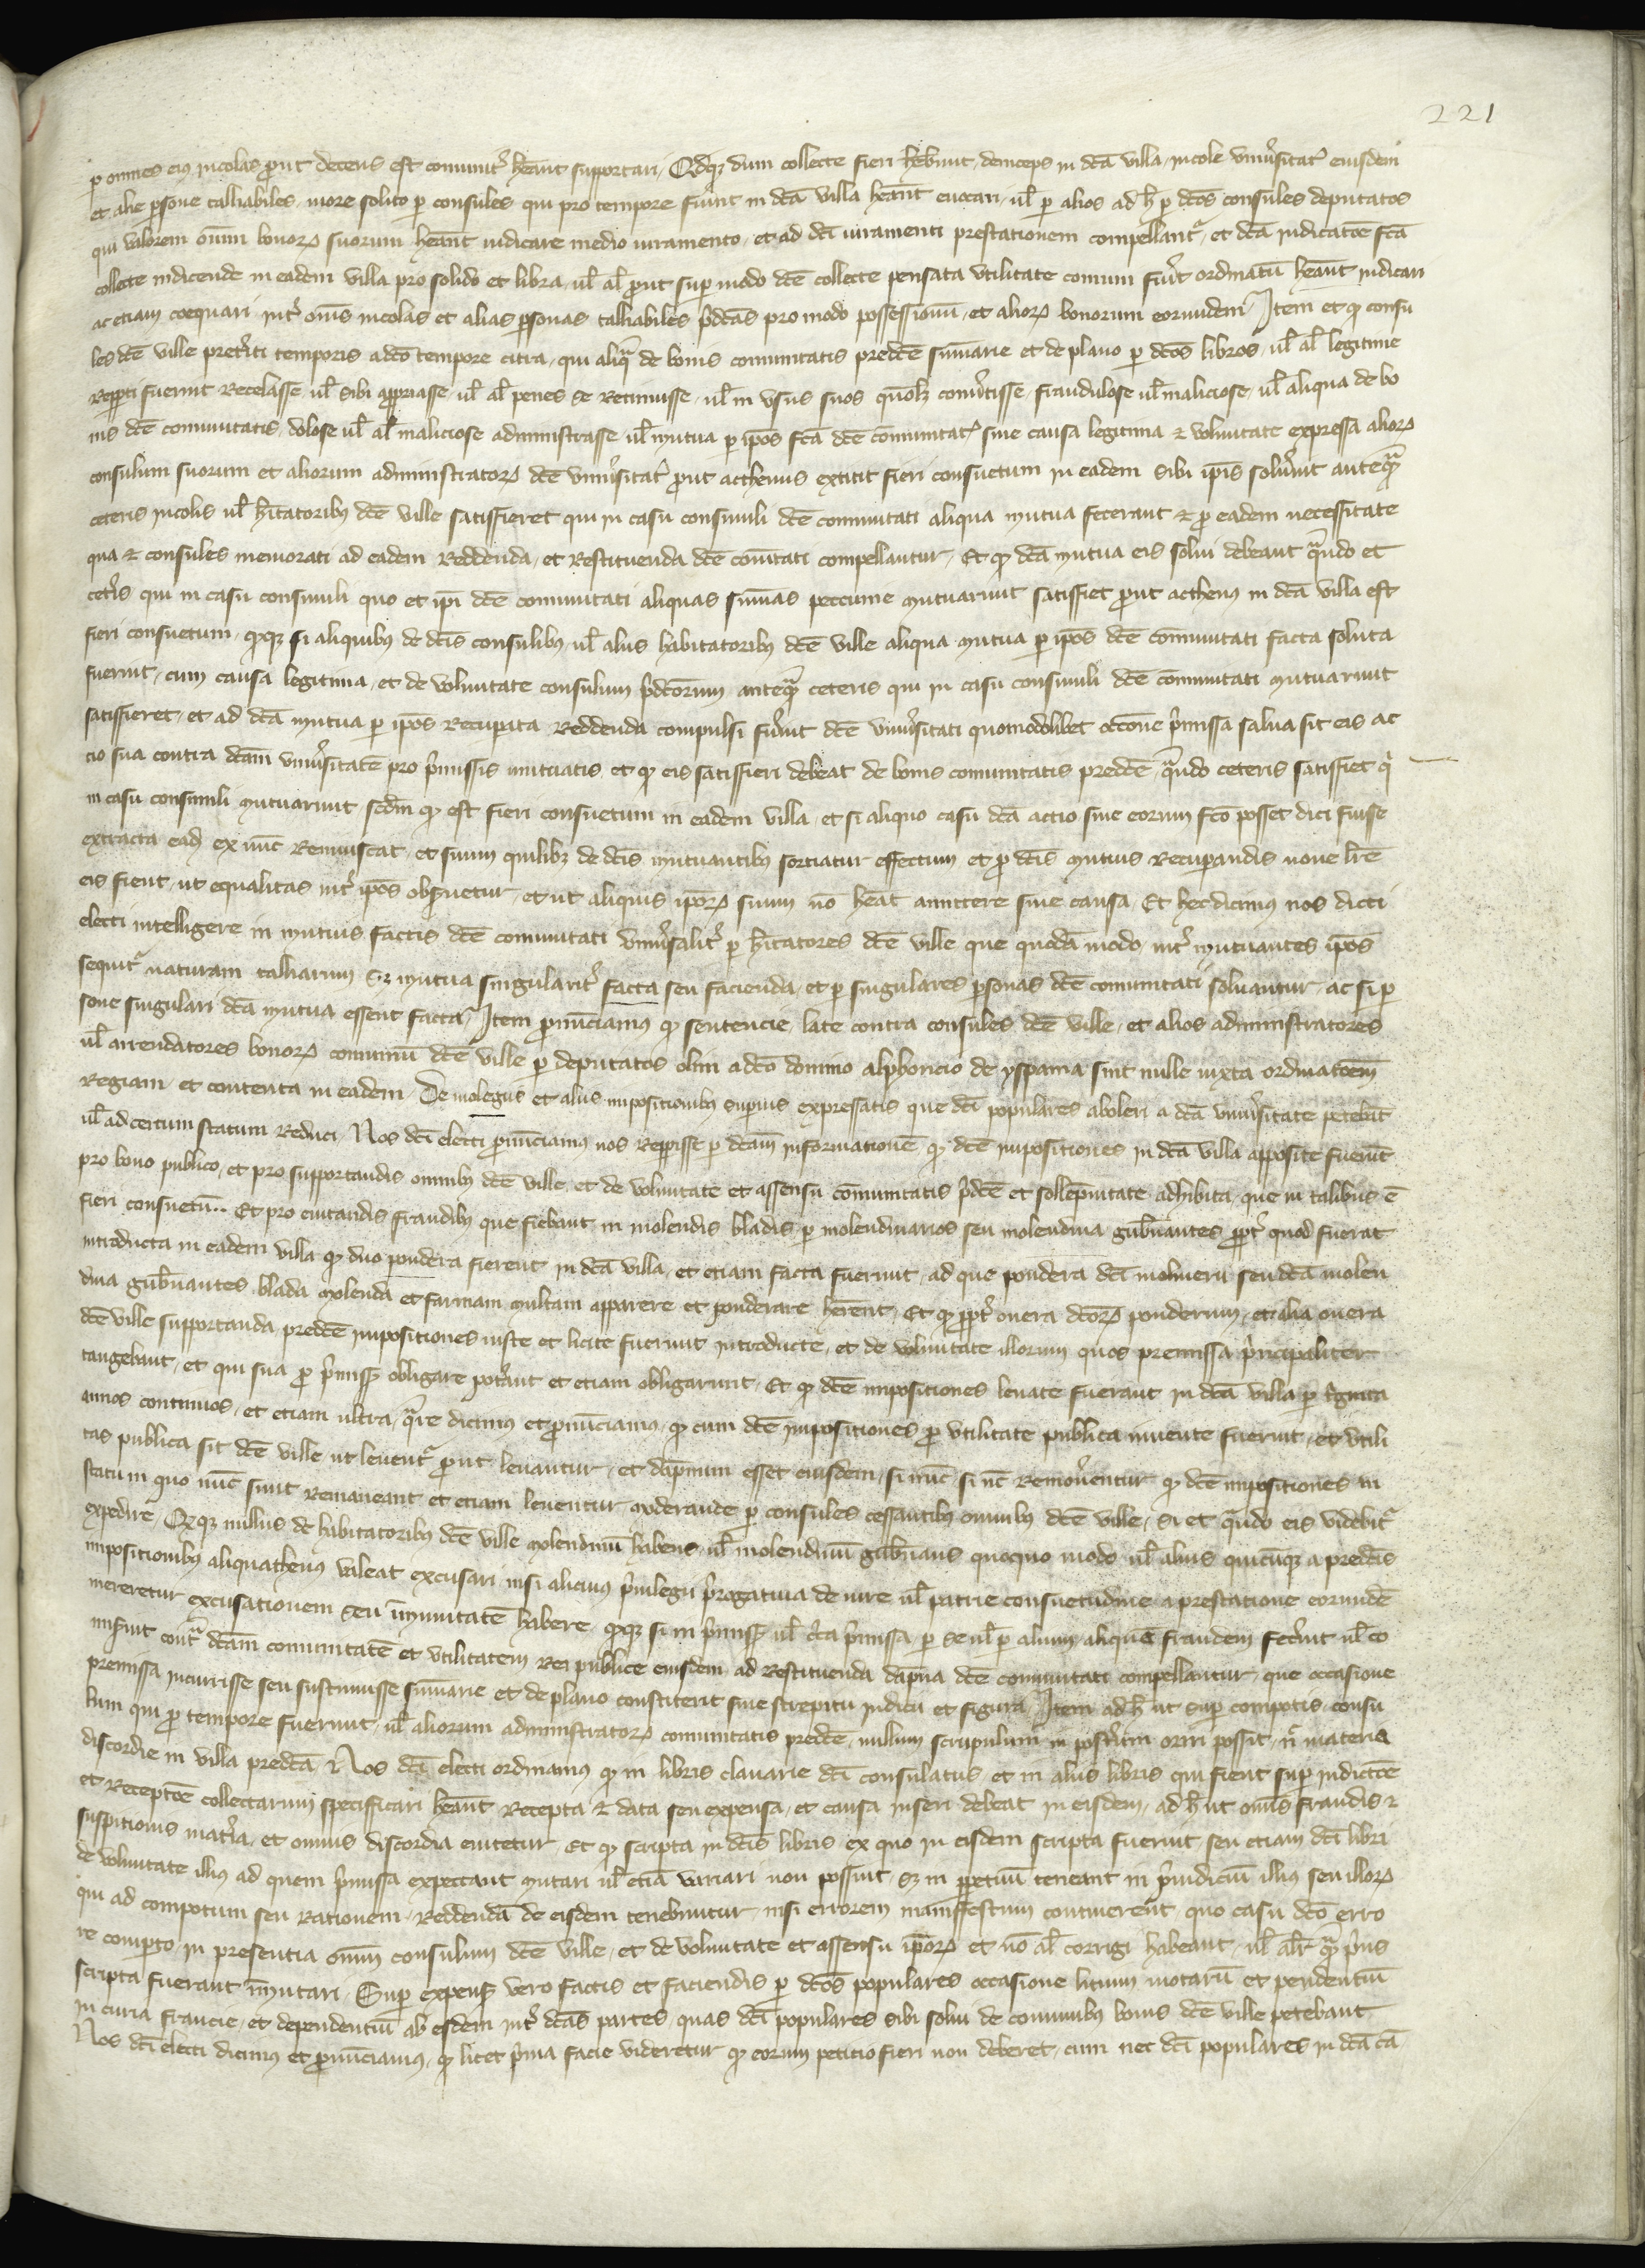 221
p omnes eius incolas prout decens est comunit̉ heānt supportari / Qdq̨ dum collecte fieri hēbunt, deinceps in dc̄a villa, incole vniu̓sitat̓ eiusdem
et alie p̱sone talliabiles, more solito p̱ consules qui pro tempore fuint in dc̄a villa heānt euocari, ul̄ p̱ alios ad h̄ p̱ dc̄os consules deputatos
qui valorem oīum bonoꝝ suorum heānt indicare medio iuramento, et ad dc̄i iuramenti prestationem compellant̉, et dc̄a indicatōe fc̄a
collecte indicende in eadem villa pro solido et libra, ul̄ al̄ prout sup̱ modo dc̄e collecte pensata vtilitate comuni fiu̓t ordinatū heānt indicari
ac etiam coequari int̉ oīns incolas et alias p̱sonas talliabiles p̓dc̄as pro modo possessionū, et alioꝝ bonorum eorundem / Item et q̨ consu
les dc̄e ville pret̓iti temporis a dc̄o tempore citra, qui aliq̄ de bonis comunitatis predc̄e sūmarie et de plano p̱ dc̄os libros, ul̄ al̄ legitime
rep̱ti fuerint recelasse, ul̄ sibi app̱riasse, ul̄ al̄ penes se retinuisse, ul̄ in vsus suos quōlꝫ conu̓tisse, fraudulose ul̄ maliciose, ul̄ aliqua de bo
nis dc̄e comunitatis, dolose ul̄ al̄ maliciose administrasse ul̄ mutua p̱ ip̄os fc̄a dc̄e cōmunitat̓ sine causa legitima ⁊ voluntate expressa alioꝝ
consulum suorum et aliorum administratoꝝ dc̄e vniu̓sitat̓ prout acthenus extitit fieri consuetum in eadem sibi ip̄is solu̓int anteq̄ꝫ
ceteris incolis ul̄ hītatoribꝫ dc̄e ville satisfieret qui in casu consimili dc̄e comunitati aliqua mutua fecerant ⁊ pro eadem necessitate
qua ⁊ consules memorati ad eadem reddenda, et restituenda dc̄e coītati compellantur, Et q̨ dc̄a mutua eis solui debeant q̄ndo et
cet̓is qui in casu consimili quo et ip̄i dc̄e comunitati aliquas sūmas peccunie mutuarunt satisfiet prout acthenꝰ in dc̄a villa est
fieri consuetum, q̨q̨ si aliquibꝫ de dc̄is consulibꝫ, ul̄ aliis habitatoribꝫ dc̄e ville aliqua mutua p̱ ip̄os dc̄e cōmunitati facta soluta
fuerint, cum causa legitima, et de voluntate consulum p̓dc̄orum anteq̄ꝫ ceteris qui in casu consimili dc̄e cōmunitati mutuarunt
satisfieret, et ad dc̄a mutua p̱ ip̄os recup̱ata reddenda compulsi fu̓int dc̄e vniu̓sitati quomodolibet occ̄one p̓missa salua sit eis ac
cio sua contra dc̄am vniu̓sitatē pro p̓missis mutuatis, et q̨ eis satisfieri debeat de bonis comunitatis predc̄e, q̄ndo ceteris satisfiet q̓
in casu consimili mutuarunt, scd̄m q̨ est fieri consuetum in eadem villa, et si aliquo casu dc̄a actio siue eorum fc̄o posset dici fuisse
extracta eadꝫ ex nūc reuiuiscat, et suum quilibꝫ de dc̄is mutuantibꝫ sortiatur effectum et pro dc̄is mutuis recup̱andis noue lr̄e
eis fient, ut equalitas int̉ ip̄os obs̱ruetur, et ut aliquis ip̄oꝝ suum nō heāt amittere sine causa, Et hec dicimus nos dicti
electi intelligere in mutuis factis dc̄e comunitati vniu̓salit̉ p̱ hītatores dc̄e ville que quodā modo, int̉ mutuantes ip̄os
sequit̉ naturam talliarum, sꝫ mutua singularit̉ facta seu facienda, et p̱ singulares p̱sonas dc̄e comunitati soluantur, ac si p̱
sone singulari dc̄a mutua essent facta, Item pronūciamꝰ q̨ sentencie, late contra consules dc̄e ville, et alios administratores
ul̄ arrendatores bonoꝝ comuniū dc̄e ville p̱ deputatos olim a dc̄o domino alphoncio de yspania sint nulle iuxta ordinatōem
regiam, et contenta in eadem, De molegiis et aliis impositionibꝫ supius expressatis que dc̄i populares aboleri a dc̄a vniu̓sitate petebāt
ul̄ ad certum statum reduci, Nos dc̄i electi pronūciamꝰ nos rep̱isse p̱ dc̄am informationē, q̨ dc̄e impositiones in dc̄a villa apposite fuerūt
pro bono publico, et pro supportandis oneribꝫ dc̄e ville, et de voluntate et assensu cōmunitatis p̓dc̄e et sollēpnitate adhibita, que in talibus ē
fieri consuetū.. Et pro euitandis fraudibꝫ que fiebant in molendis bladis p̱ molendinarios seu molendina gub̄nantes, propt̉ quod fuerat
introducta in eadem villa q̨ duo pondera fierent in dc̄a villa, et etiam facta fuerunt, ad que pondera dc̄i molinerii seu dc̄a molen
dina gub̄nantes, blada molenda et farinam multam apparere et ponderare hērent, Et q̨ propt̉ onera dc̄oꝝ ponderum, et alia onera
dc̄e ville supportanda, predc̄e impositiones iuste et licite fuerunt introducte, et de voluntate illorum quos premissa p̓ncipaliter
tangebant, et qui sua pro p̓missꝫ obligare pot̓ant et etiam obligarunt, Et q̨ dc̄e impositiones leuate fuerant in dc̄a villa p̱ t̓ginta
annos continuos, et etiam ultra, q̄re dicimus et pronūciamꝰ, q̨ cum dc̄e impositiones pro vtilitate publica inuente fuerint, et vtili
tas publica sit dc̄e ville ut leuent̉ prout leuantur, et dāpnum esset eiusdem, si nūc si nc̄ remou̓entur q̨ dc̄e impositiones in
statu in quo nūc sunt remaneant et etiam leuentur moderande p̱ consules cessantibꝫ oneribꝫ dc̄e ville, si et q̄ndo eis videbit̉
expedire, Qdq̨ nullus de habitatoribꝫ dc̄e ville molendinū habens, ul̄ molendinū gub̄nans quoquo modo, ul̄ alius quicūq̨ a predc̄is
impositionibꝫ aliquathenꝰ valeat excusari nisi alicuius p̓uilegii p̓rogatiua de iure ul̄ patrie consuetudine, a prestatione eorundē
mereretur excusationem seu īmunitatē habere, q̨q̨ si in p̓missꝫ ul̄ c̓ca p̓missa, p̱ se ul̄ p̱ alium, aliquā fraudem fec̓int ul̄ co
mis̓int cont̄ dc̄am comunitatē et vtilitatem rei publice eiusdem, ad restituenda dāpna dc̄e comunitati compellantur, que occasione
premissa incurrisse seu sustinuisse sūmarie et de plano constiterit sine strepitu iudicii et figura, Item ad h̄ ut sup̱ compotis consu
lum qui pro tempore fuerunt, ul̄ aliorum administratoꝝ comunitatis predc̄e, nullum scrupulum in post̓um oriri possit, n̄ materia
discordie in villa predc̄a, Nos dc̄i electi ordinamus q̨ in libris clauarie dc̄i consulatus et in aliis libris qui fient sup̱ indictōe
et receptōe collectarum specifficari heānt recepta ⁊ data seu expensa, et causa inseri debeat in eisdem, ad h̄ ut oīns fraudis ⁊
suspitionis mat̓ia, et omnis discordia euitetur, Et q̨ scripta in dc̄is libris ex quo in eisdem scripta fuerint, seu etiam dc̄i libri
de voluntate illius ad quem p̓missa expectant mutari ul̄ etiā variari non possint, sꝫ in p̱petuū teneant in p̓iudiciū illius seu illoꝝ
qui ad compotum seu rationem, reddendā de eisdem tenebuntur, nisi errorem manifestum continerent, quo casu dc̄o erro
re comp̱to, in presentia oīum consulum dc̄e ville, et de voluntate et assensu ip̄oꝝ et nō al̄ corrigi habeant, ul̄ alr̄ q̄ꝫ p̓us
scripta fuerant īmutari, Sup̱ expensꝫ vero factis et faciendis p̱ dc̄os populares occasione litium motarū et pendentiū
in curia francie, et dependentiū ab eisdem int̉ dc̄as partes, quas dc̄i populares sibi solui de comunibꝫ bonis dc̄e ville petebant
Nos dc̄i electi dicimus et pronūciamꝰ, q̨ licet p̓ma facie videretur q̨ eorum peticio fieri non deberet, cum nec dc̄i populares in dc̄a cā